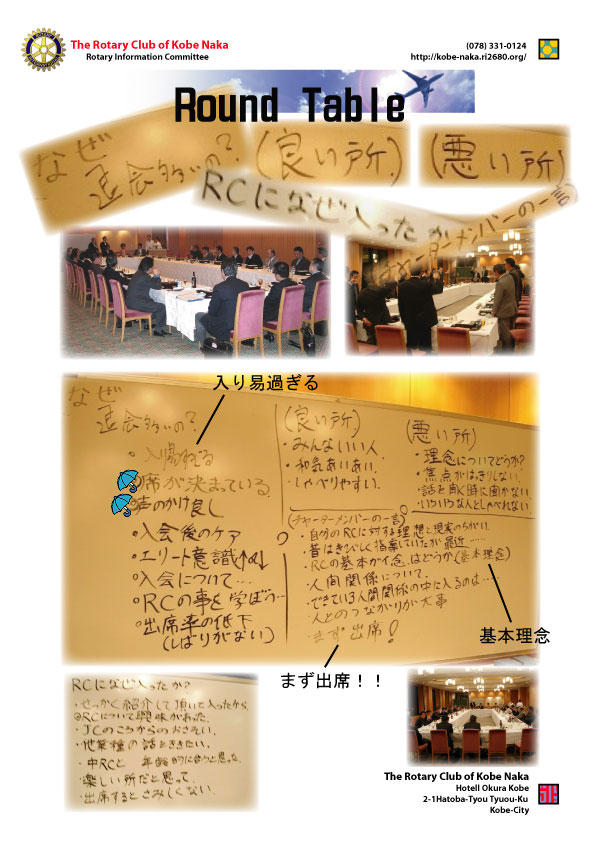 The Rotary Club of Kobe Naka
Rotary Information Committee
(078) 331-0124
http://kobe-naka.ri2680.org/
Round Table
なぜ
退会多いの？
(良い所)
(悪い所)
RCになぜ入ったか
(チャーターメンバーの一言)
入り易過ぎる
なぜ
退会多いの？
・入り易すぎる
席が決まっている
声のかけ良し
・入会後のケア
・エリート意識
・入会について…
・RCの事を学ぼう…
・出席率の低下
(しばりがない)
(良い所)
・みんないい人
・和気あいあい
・しゃべりやすい
(悪い所)
・理念についてどうか？
・焦点がはっきりしない
・話を聞く時に聞かない
・いろいろな人としゃべれない
(チャーターメンバーの一言)
・自分のRCに対する理想と現実のちがい
・昔はきびしく指導していたが最近……
・RCの基本 はどうか(基本理念)
・人間関係について
・できている人間関係の中に入るのは…
・人とのつながりが大事
・まず出席！
基本理念
まず出席！！
RCになぜ入ったか？
・せっかく紹介して頂いて入ったから
RCについて興味があった
・JCのころからのおさそい
・他業種の話をききたい
・中RCと 年齢的に合うと思った
・楽しい所だと思って
・出席するとさみしくない
The Rotary Club of Kobe Naka
Hotell Okura Kobe
2-1Hatoba-Tyou Tyuou-Ku
Kobe-City